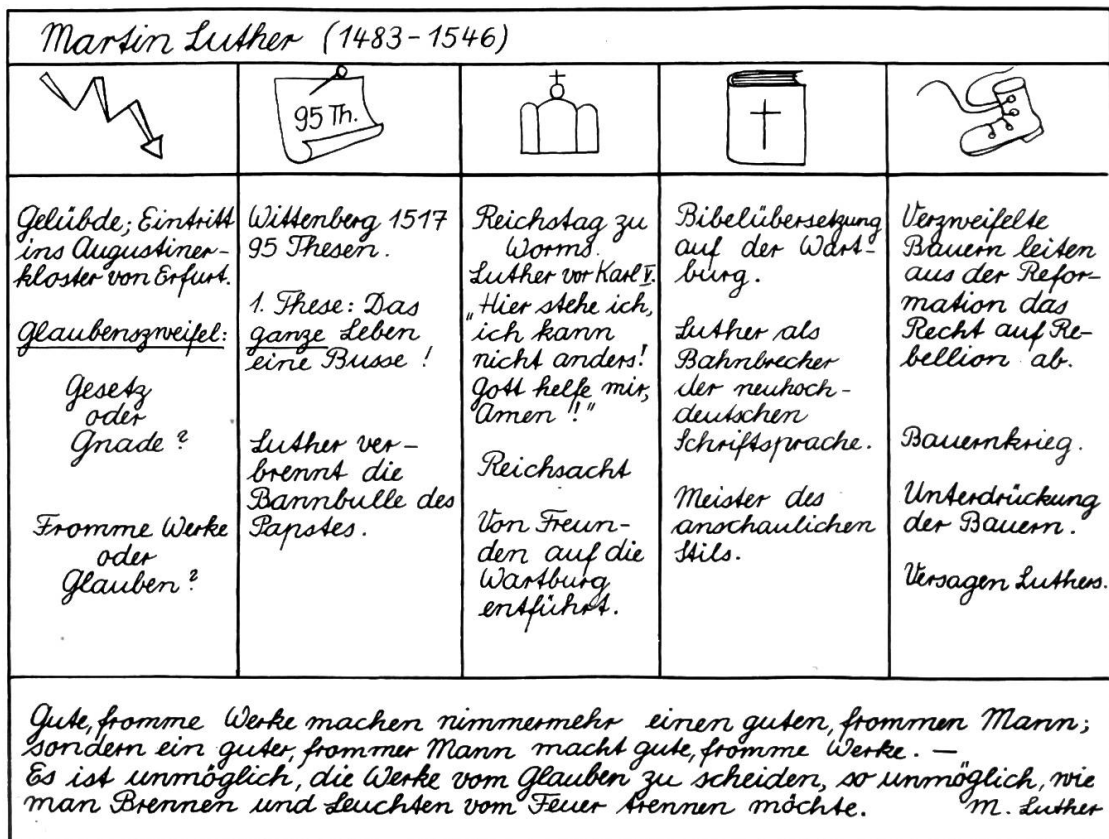 Martin Luther (1483-1546)
95 Th.
Gelübde; Eintritt
ins Augustiner-
kloster von Erfurt.
Glaubenszweifel:
Gesetz
oder
Gnade?
Fromme Werke
oder
Glauben?
Wittenberg 1517
95 Thesen.
1. These: Das
ganze Leben
eine Busse!
Luther ver-
brennt die
Bannbulle des
Papstes.
Reichstag zu
Worms.
Luther vor Karl V.
"Hier stehe ich,
ich kann
nicht anders!
Gott helfe mir,
Amen!!"
Reichsacht
Von Freun-
den auf die
Wartburg
entführt.
Bibelübersetzung
auf der Wart-
burg.
Luther als
Bahnbrecher
der neuhoch-
deutschen
Schriftsprache.
Meister des
anschaulichen
Stils.
Verzweifelte
Bauern leiten
aus der Refor-
mation das
Recht auf Re-
bellion ab.
Bauernkrieg.
Unterdrückung
der Bauern.
Versagen Luthers.
Gute, fromme Werke machen nimmermehr einen guten, frommen Mann;
sondern ein guter, frommer Mann macht gute, fromme Werke. —
Es ist unmöglich, die Werke vom Glauben zu scheiden, so unmöglich, wie
man Brennen und Leuchten vom Feuer trennen möchte. M. Luther